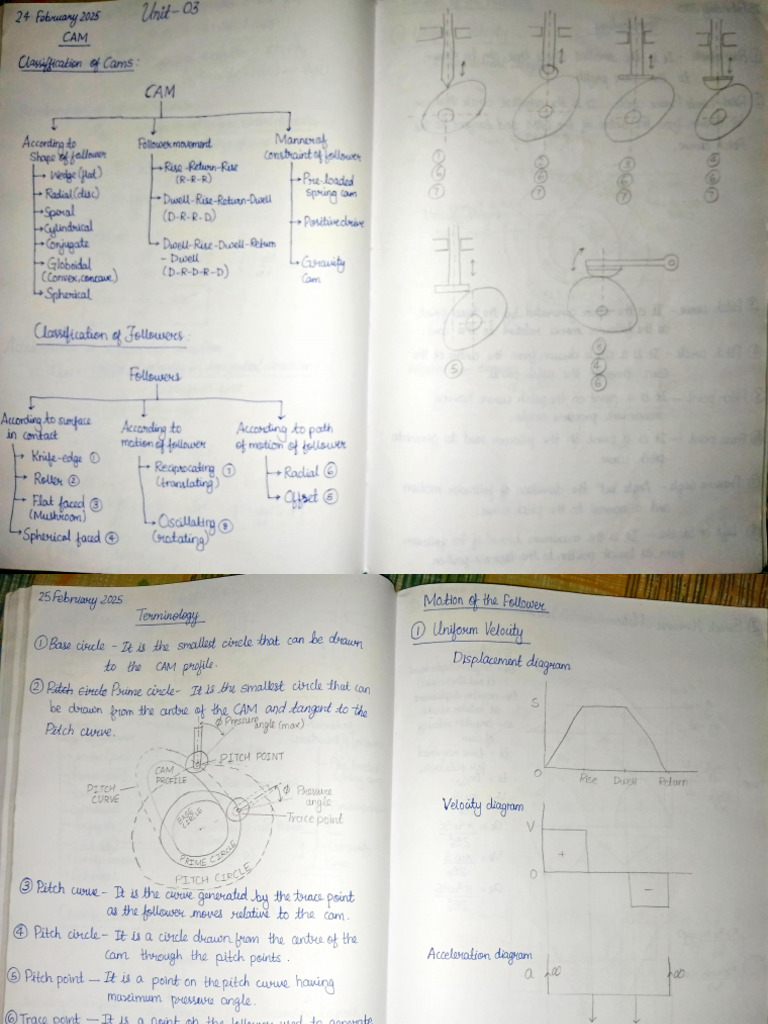 24 February 2025
Unit-03
CAM
Classification of Cams:
CAM
According to
Shape of follower
→ Wedge (flat)
→ Radial (disc)
→ Sporal
→ Cylindrical
→ Conjugate
→ Globoidal
(Convex, concave)
→ Spherical
Follower movement
→ Rise-Return-Rise
(R-R-R)
→ Dwell-Rise-Return-Dwell
(D-R-R-D)
→ Dwell-Rise-Dwell-Return
- Dwell
(D-R-D-R-D)
Manner of
constraint of follower
→ Pre-loaded
spring cam
→ Positive drive
→ Gravity
Cam
Classification of Followers:
Followers
According to surface
in contact
→ Knife-edge ①
→ Roller ②
→ Flat faced ③
(Mushroom)
→ Spherical faced ④
According to
motion of follower
→ Reciprocating ⑦
(translating)
→ Oscillating ⑧
(rotating)
According to path
of motion of follower
→ Radial ⑥
→ Offset ⑤
⑥
⑦
⑥
⑦
⑥
⑦
⑥
⑦
⑤
④
⑥
25 February 2025
Terminology
① Base circle - It is the smallest circle that can be drawn
to the CAM profile.
② Pitch circle Prime circle - It is the smallest circle that can
be drawn from the centre of the CAM and tangent to the
Pitch curve.
ϕ Pressure
angle (max)
PITCH POINT
CAM
PROFILE
PITCH
CURVE
ϕ Pressure
angle
Trace point
BASE
CIRCLE
PRIME CIRCLE
PITCH CIRCLE
③ Pitch curve - It is the curve generated by the trace point
as the follower moves relative to the cam.
④ Pitch circle - It is a circle drawn from the centre of the
cam through the pitch points.
⑤ Pitch point - It is a point on the pitch curve having
maximum pressure angle.
⑥ Trace point - It is a point on the follower used to generate
Motion of the Follower
① Uniform Velocity
Displacement diagram
S
O
Rise Dwell Return
Velocity diagram
V
+
O
-
Acceleration diagram
a
∞
∞